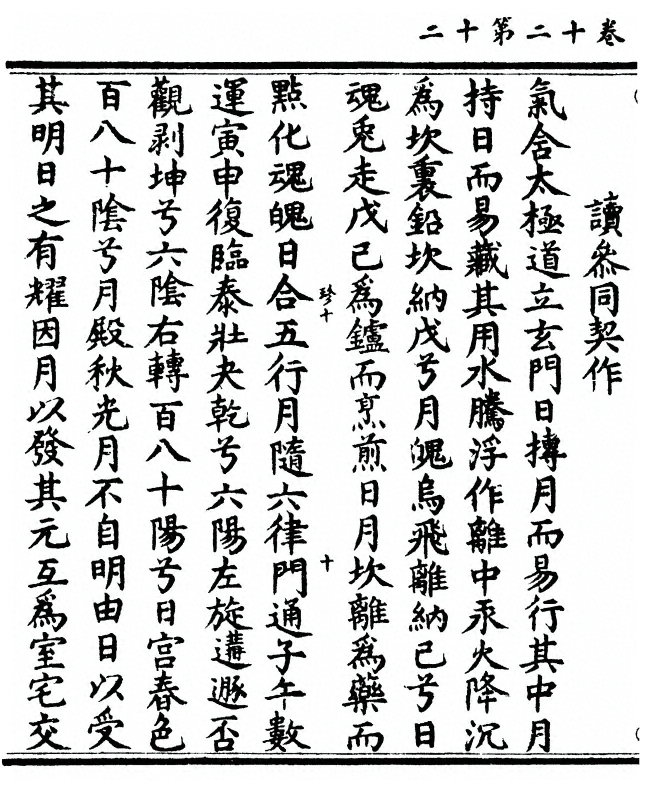 卷十二第十二
讀叅同契作
氣舍太極道立玄門日摶月而易行其中月
持日而易藏其用水騰浮作離中汞火降沉
為坎裏鉛坎納戊兮月魄烏飛離納己兮日
魂兎走戊己為鑪而烹煎日月坎離為藥而
點化魂魄日合五行月隨六律門通子午數
運寅申復臨泰壯夬乾兮六陽左旋遘遯否
觀剥坤兮六陰右轉百八十陽兮日宫春色
百八十陰兮月殿秋光月不自明由日以受
其明日之有耀因月以發其元互為室宅交